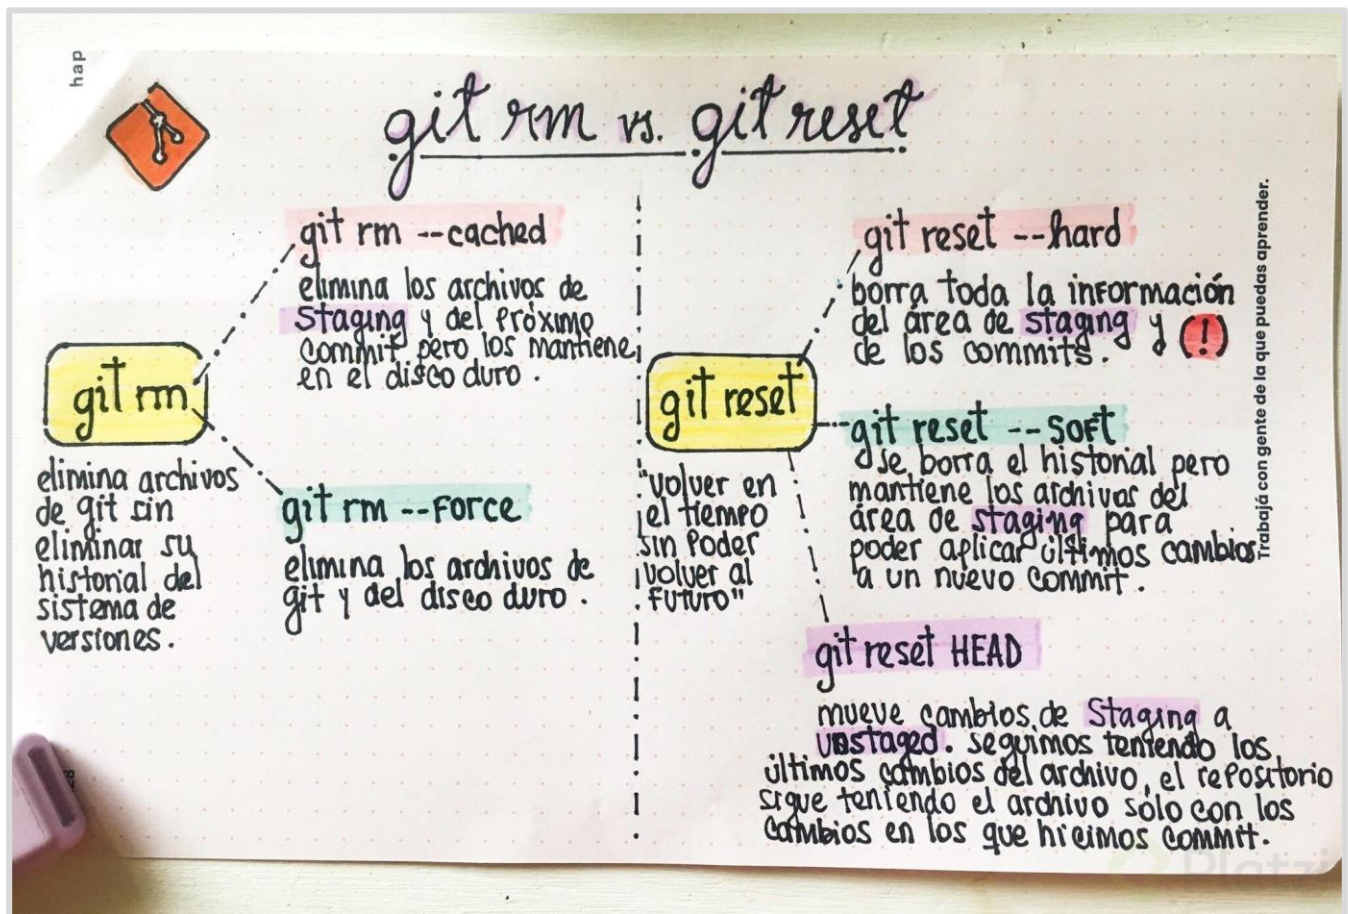 hap
git rm vs. git reset
git rm
elimina archivos
de git sin
eliminar su
historial del
sistema de
versiones.
git rm --cached
elimina los archivos de
Staging y del próximo
commit, pero los mantiene
en el disco duro.
git rm --force
elimina los archivos de
git y del disco duro.
git reset
"volver en
el tiempo
sin poder
volver al
futuro"
git reset --hard
borra toda la información
del área de staging y (!)
de los commits.
git reset --soft
se borra el historial pero
mantiene los archivos del
área de staging para
poder aplicar últimos cambios
a un nuevo commit.
git reset HEAD
mueve cambios de Staging a
unstaged. seguimos teniendo los
últimos cambios del archivo, el repositorio
sigue teniendo el archivo sólo con los
cambios en los que hicimos commit.
Trabajá con gente de la que puedas aprender.
Platzi